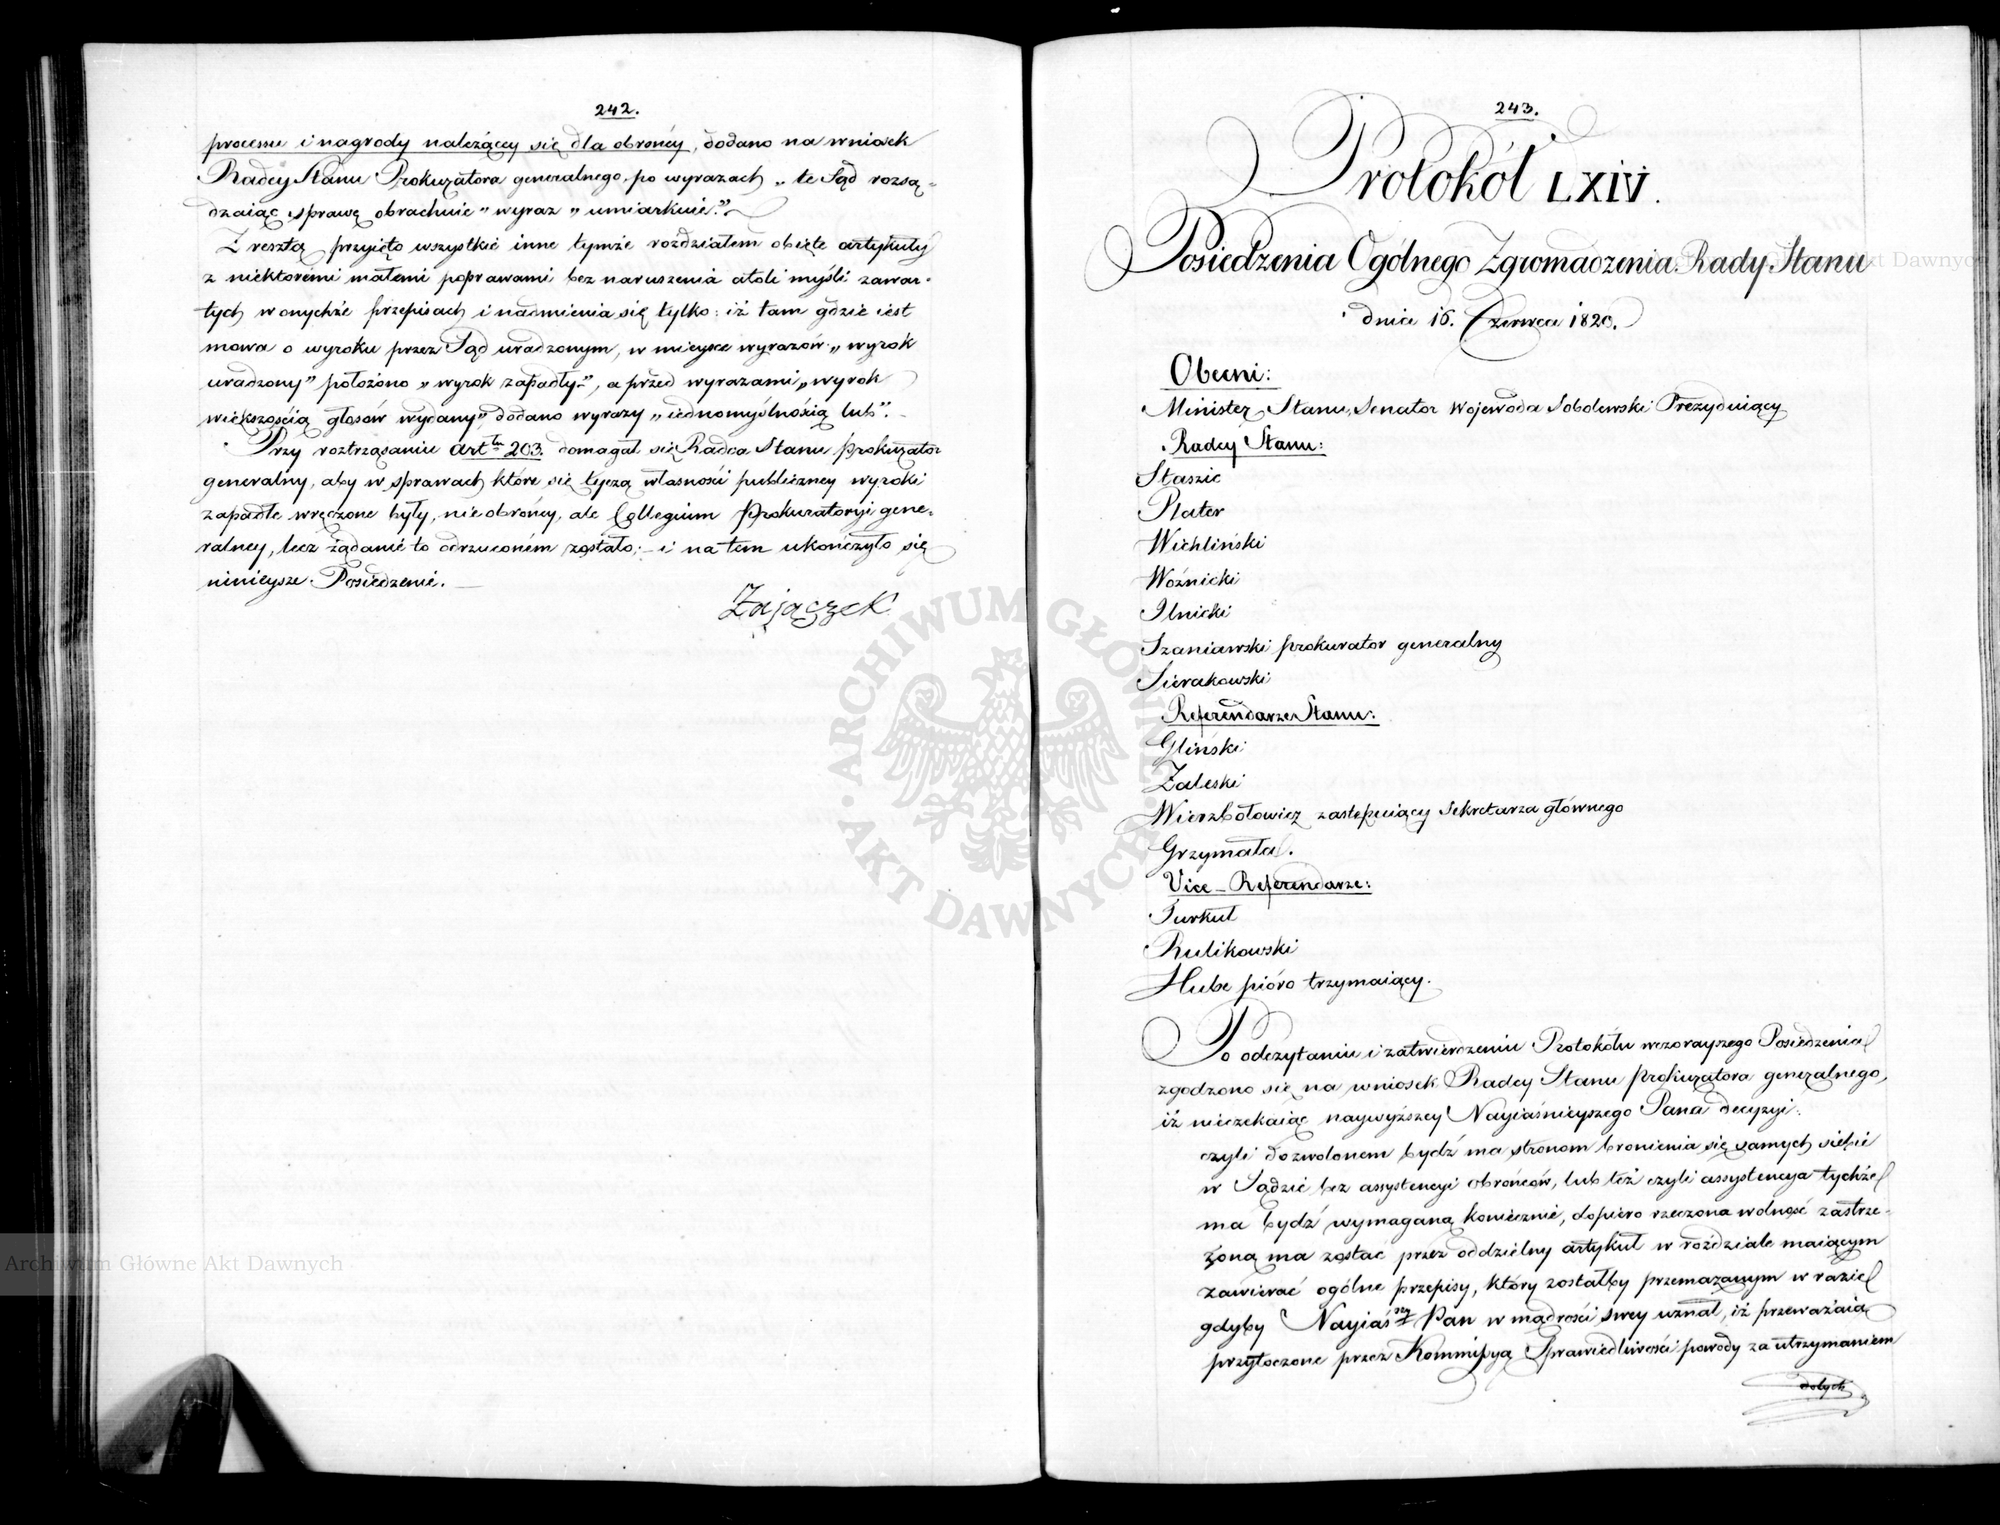 242.
processu i nagrody należącey się dla obrońcy, dodano na wniosek
Radcy Stanu Prokuratora generalnego, po wyrazach „te Sąd rozsą-
dzaiąc sprawę obrachuie” wyraz „umiarkuie.”
Z resztą przyięto wszystkie inne tymże rozdziałem obięte artykuły
z niektóremi małemi poprawami bez naruszenia atoli myśli zawar-
tych w onychże przepisach i nadmienia się tylko: iż tam gdzie iest
mowa o wyroku przez Sąd uradzonym, w mieysce wyrazów „wyrok
uradzony” położono „wyrok zapadły”, a przed wyrazami „wyrok
większością głosów wydany” dodano wyrazy „iednomyślnością lub”.
Przy roztrząsaniu artłu 203. domagał się Radca Stanu prokurator
generalny, aby w sprawach które się tyczą własności publiczney wyroki
zapadłe wręczone były, nie obrońcy, ale Collegium Prokuratoryi gene-
ralney, lecz żądanie to odrzuconém zostało; – i na tem ukończyło się
ninieysze Posiedzenie. –
Zajączek
243.
Protokół LXIV.
Posiedzenia Ogólnego Zgromadzenia Rady Stanu
dnia 16. Czerwca 1820.
Obecni:
Minister Stanu, Senator Wojewoda Sobolewski Prezyduiący
Radcy Stanu:
Staszic
Plater
Wichliński
Woźnicki
Ilnicki
Szaniawski prokurator generalny
Sierakowski
Referendarze Stanu:
Gliński
Zaleski
Wierzbołowicz zastępuiący Sekretarza głównego
Grzymała.
Vice – Referendarze:
Turkuł
Rulikowski
Hube pióro trzymaiący.
Po odczytaniu i zatwierdzeniu Protokółu wczorayszego Posiedzenia
zgodzono się na wniosek Radcy Stanu prokuratora generalnego,
iż nieczekaiąc naywyższey Nayiaśnieyszego Pana decyzyi:
czyli dozwolonem bydź ma stronom bronienia się samych siebie
w Sądzie bez assystencyi obrońców, lub też czyli assystencya tychże
ma bydź wymaganą koniecznie, dopiero rzeczona wolność zastrze-
żoną ma zostać przez oddzielny artykuł w rozdziale maiącym
zawierać ogólne przepisy, który zostałby przemazanym w razie
gdyby Nayiaśny Pan w mądrości swey uznał, iż przeważaią
przytoczone przez Kommissyą Sprawiedliwości powody za utrzymaniem
dotych
ARCHIWUM GŁÓWNE AKT DAWNYCH
Archiwum Główne Akt Dawnych